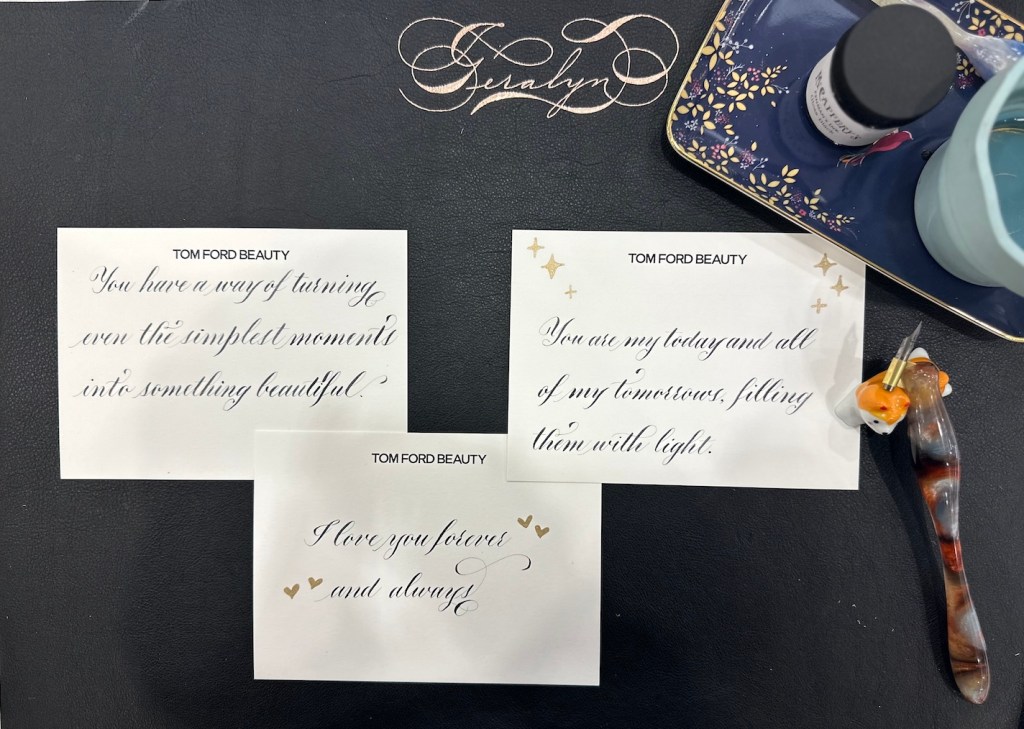 Jeralyn
TOM FORD BEAUTY
You have a way of turning
even the simplest moments
into something beautiful.
TOM FORD BEAUTY
You are my today and all
of my tomorrows, filling
them with light.
TOM FORD BEAUTY
I love you forever
and always